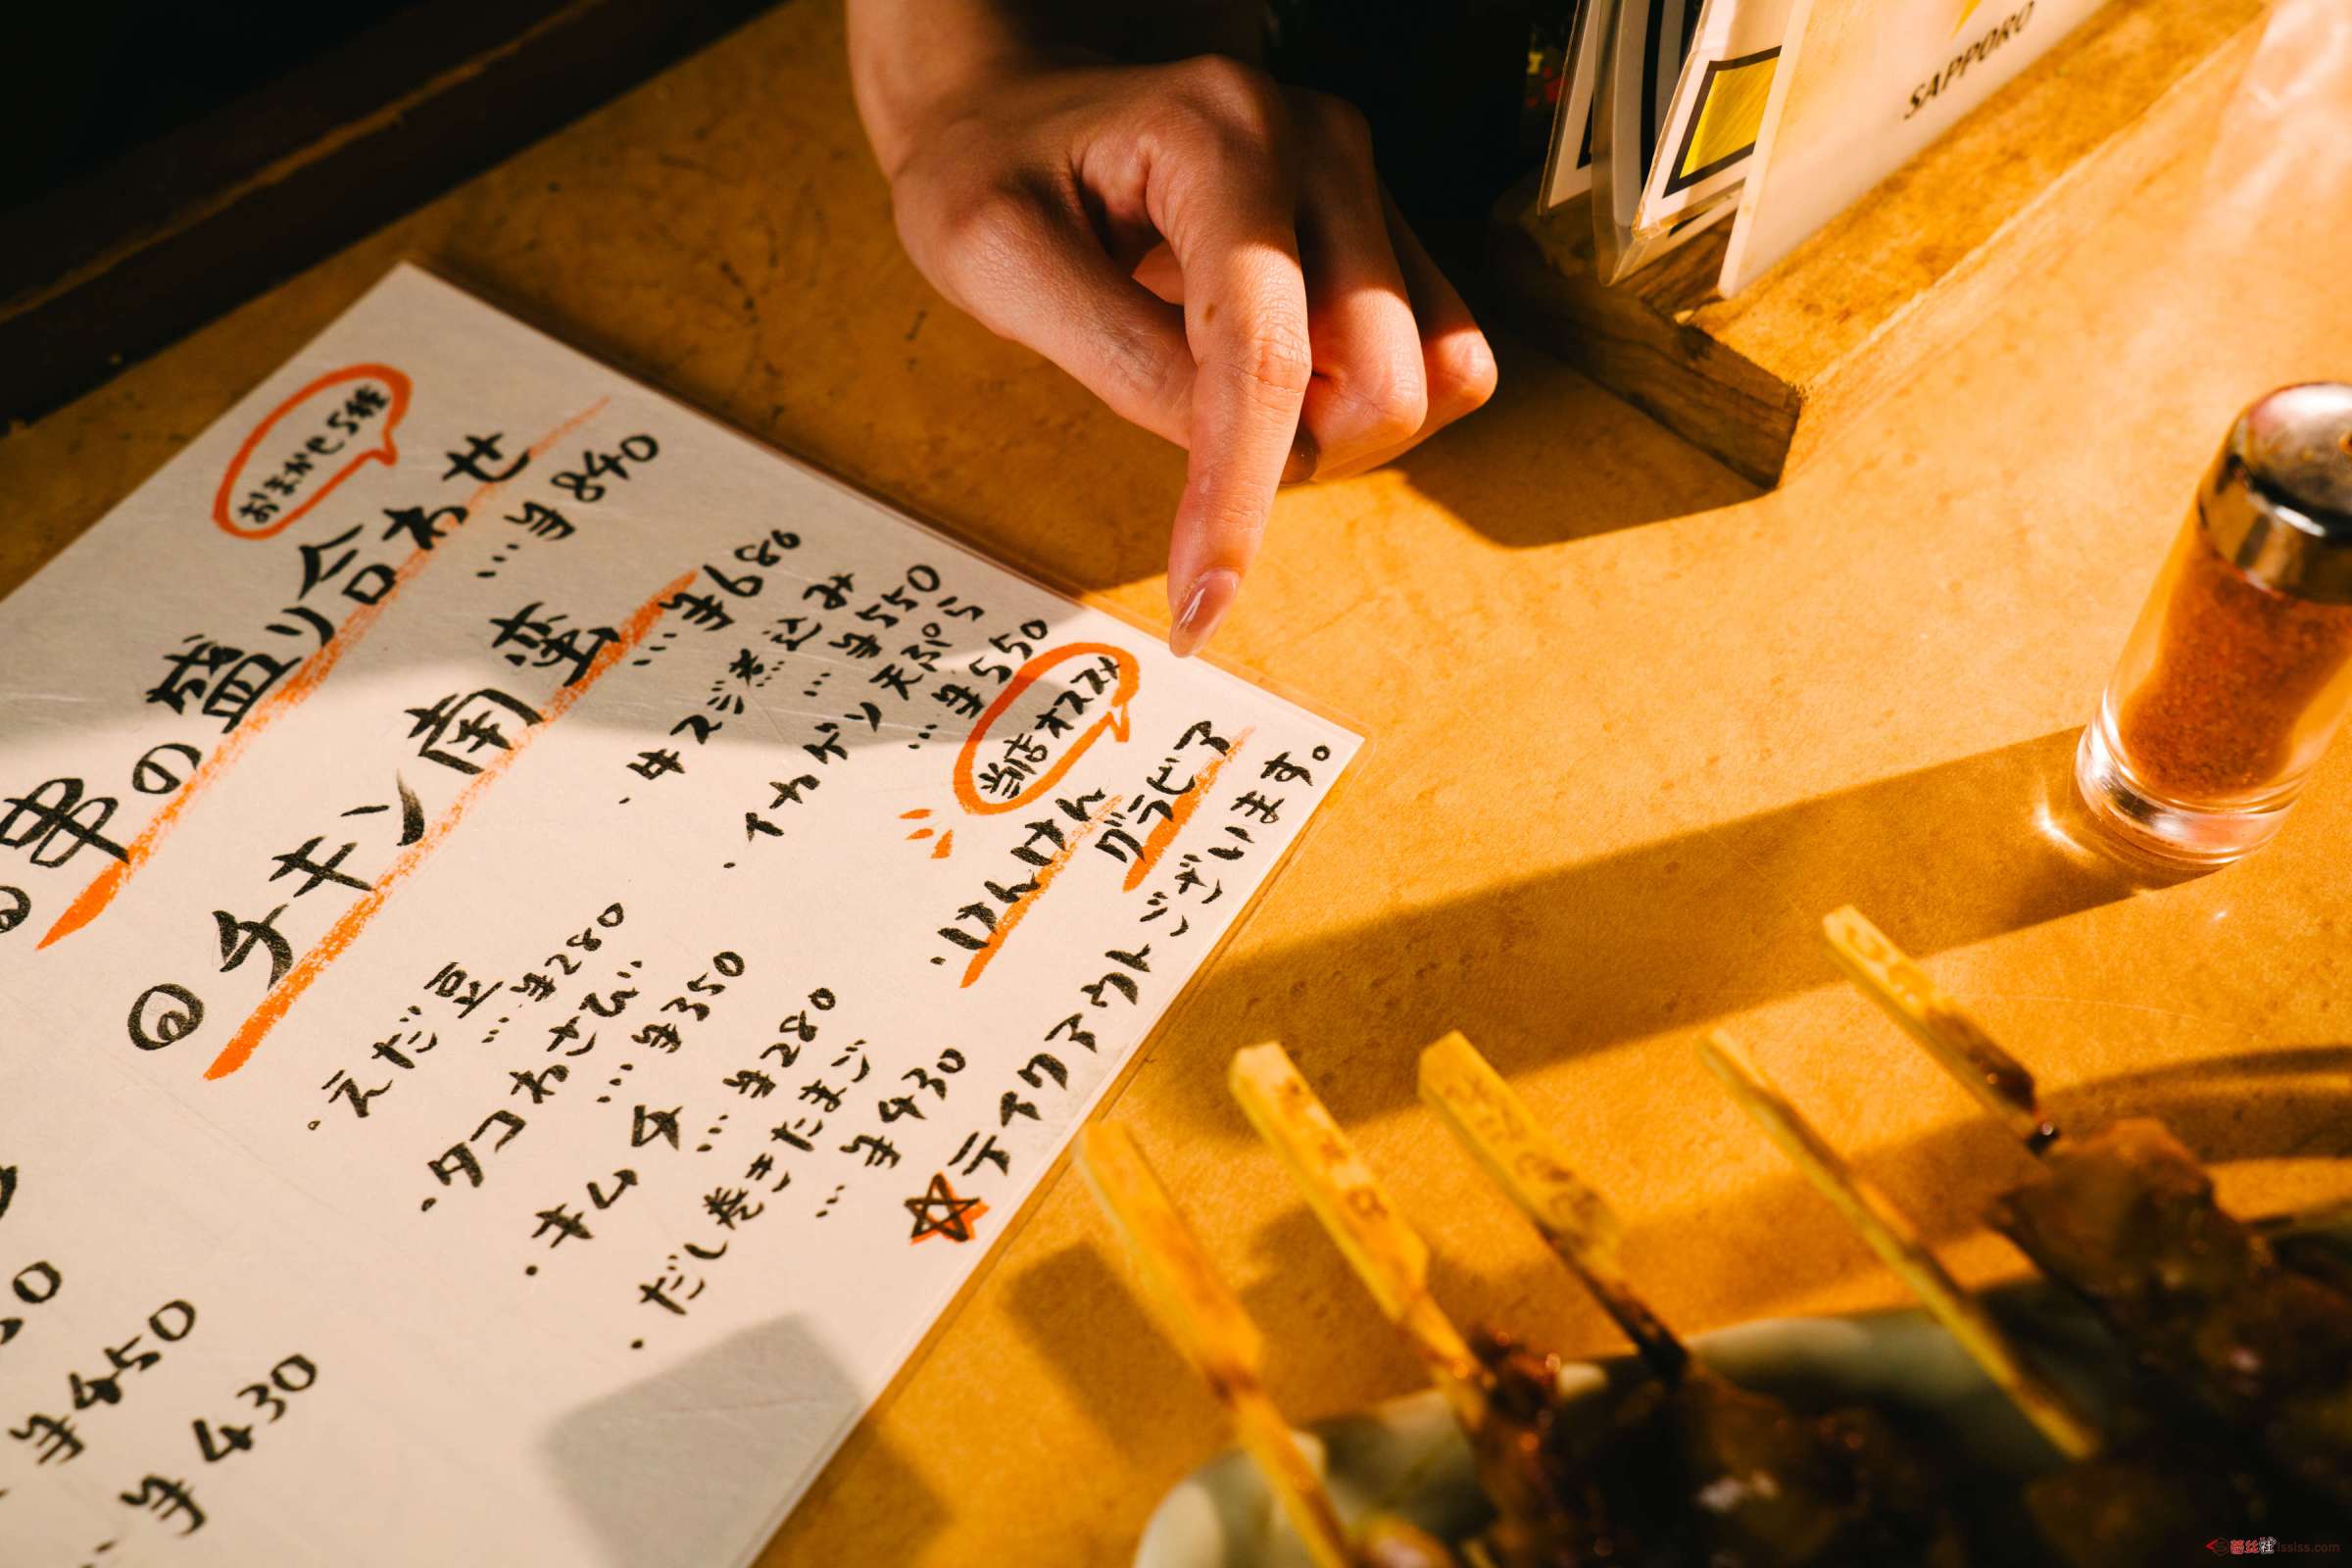 SAPPORO
おまかせ5種
串の盛り合わせ
…¥840
@チキン南蛮
…¥680
・牛スジ煮込み
…¥550
・イカゲソ天ぷら
…¥550
当店オススメ
・はんけん
グラビア
・えだ豆
…¥280
・タコわさび
…¥350
・キムチ
…¥280
・だし巻きたまご
…¥430
☆テイクアウトシています。
¥450
¥430